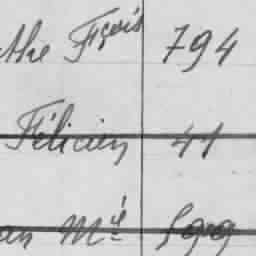 the Fçois 794
Félicien 41
an Mie 599